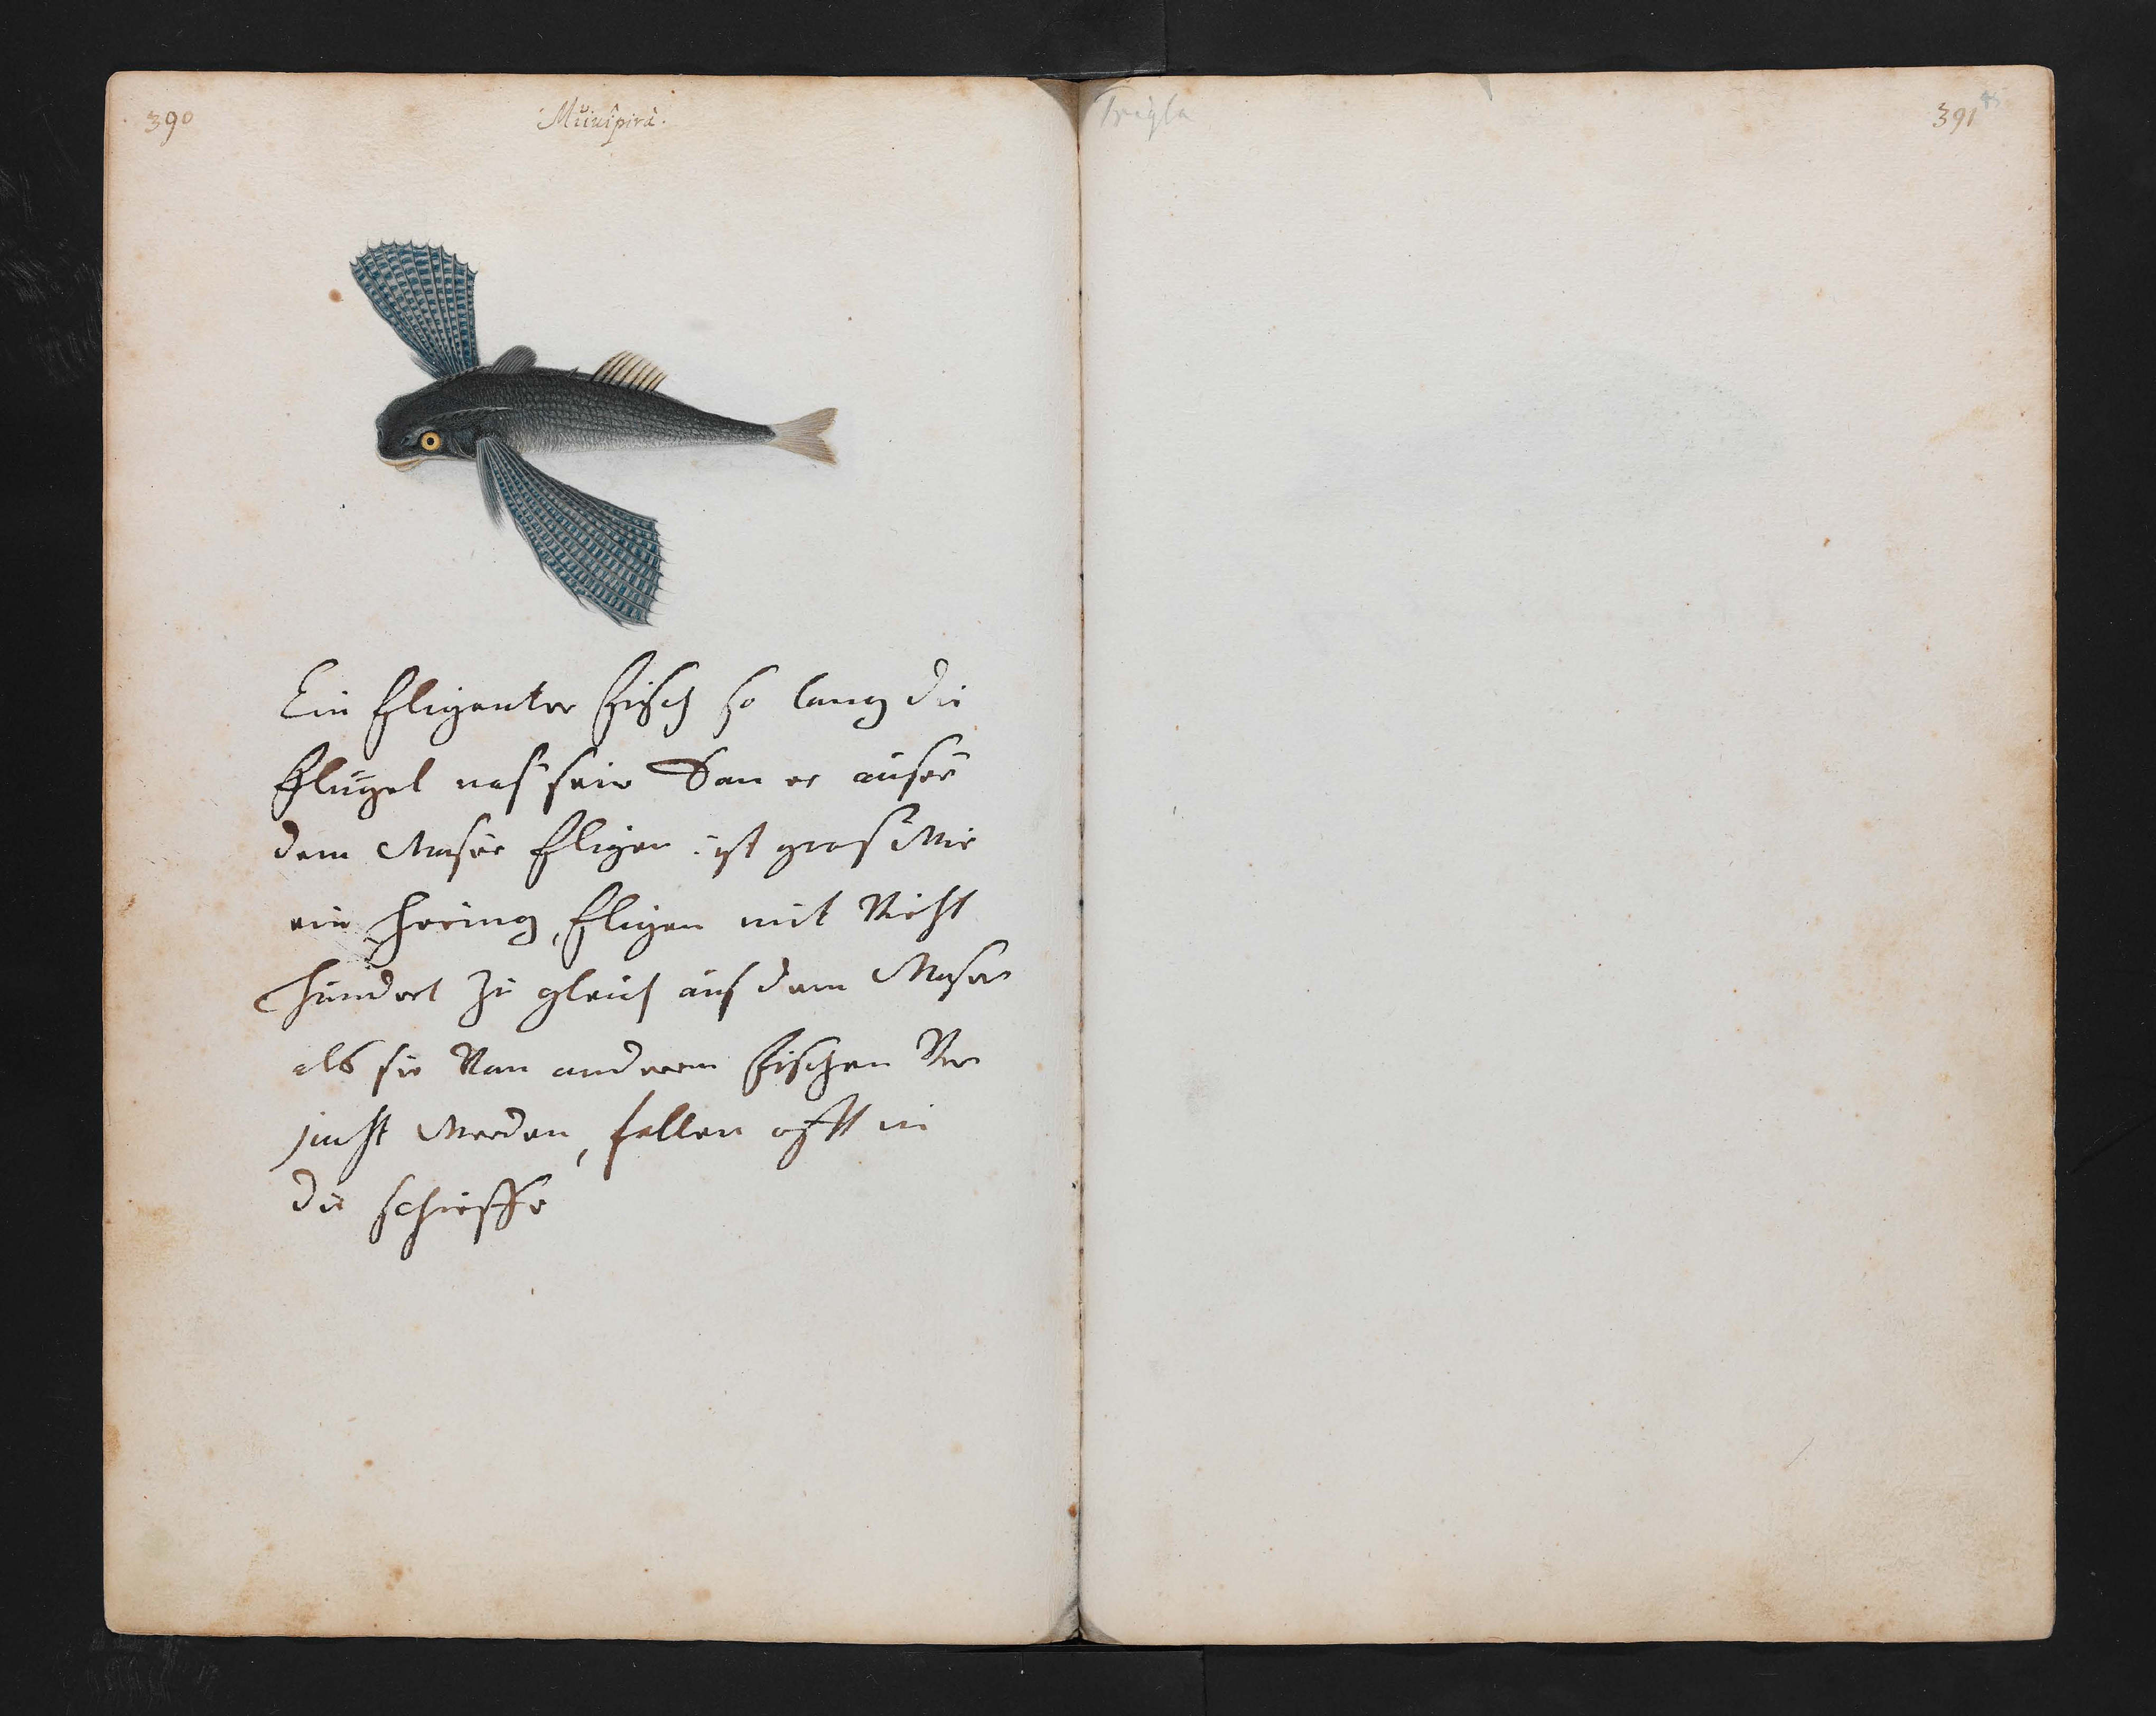 390
Miiuipirà.
Ein fligenter fisch so lang die
flugel nas sein Dan er auser
dem Waser fligen ist gros Wie
ein hering, fligen mit Vicht
hundert zu gleich aus dem Waser
als sie Van anderen fischen Ver
jacht Werden, fallen offt in
die schieffe
Trigla
391